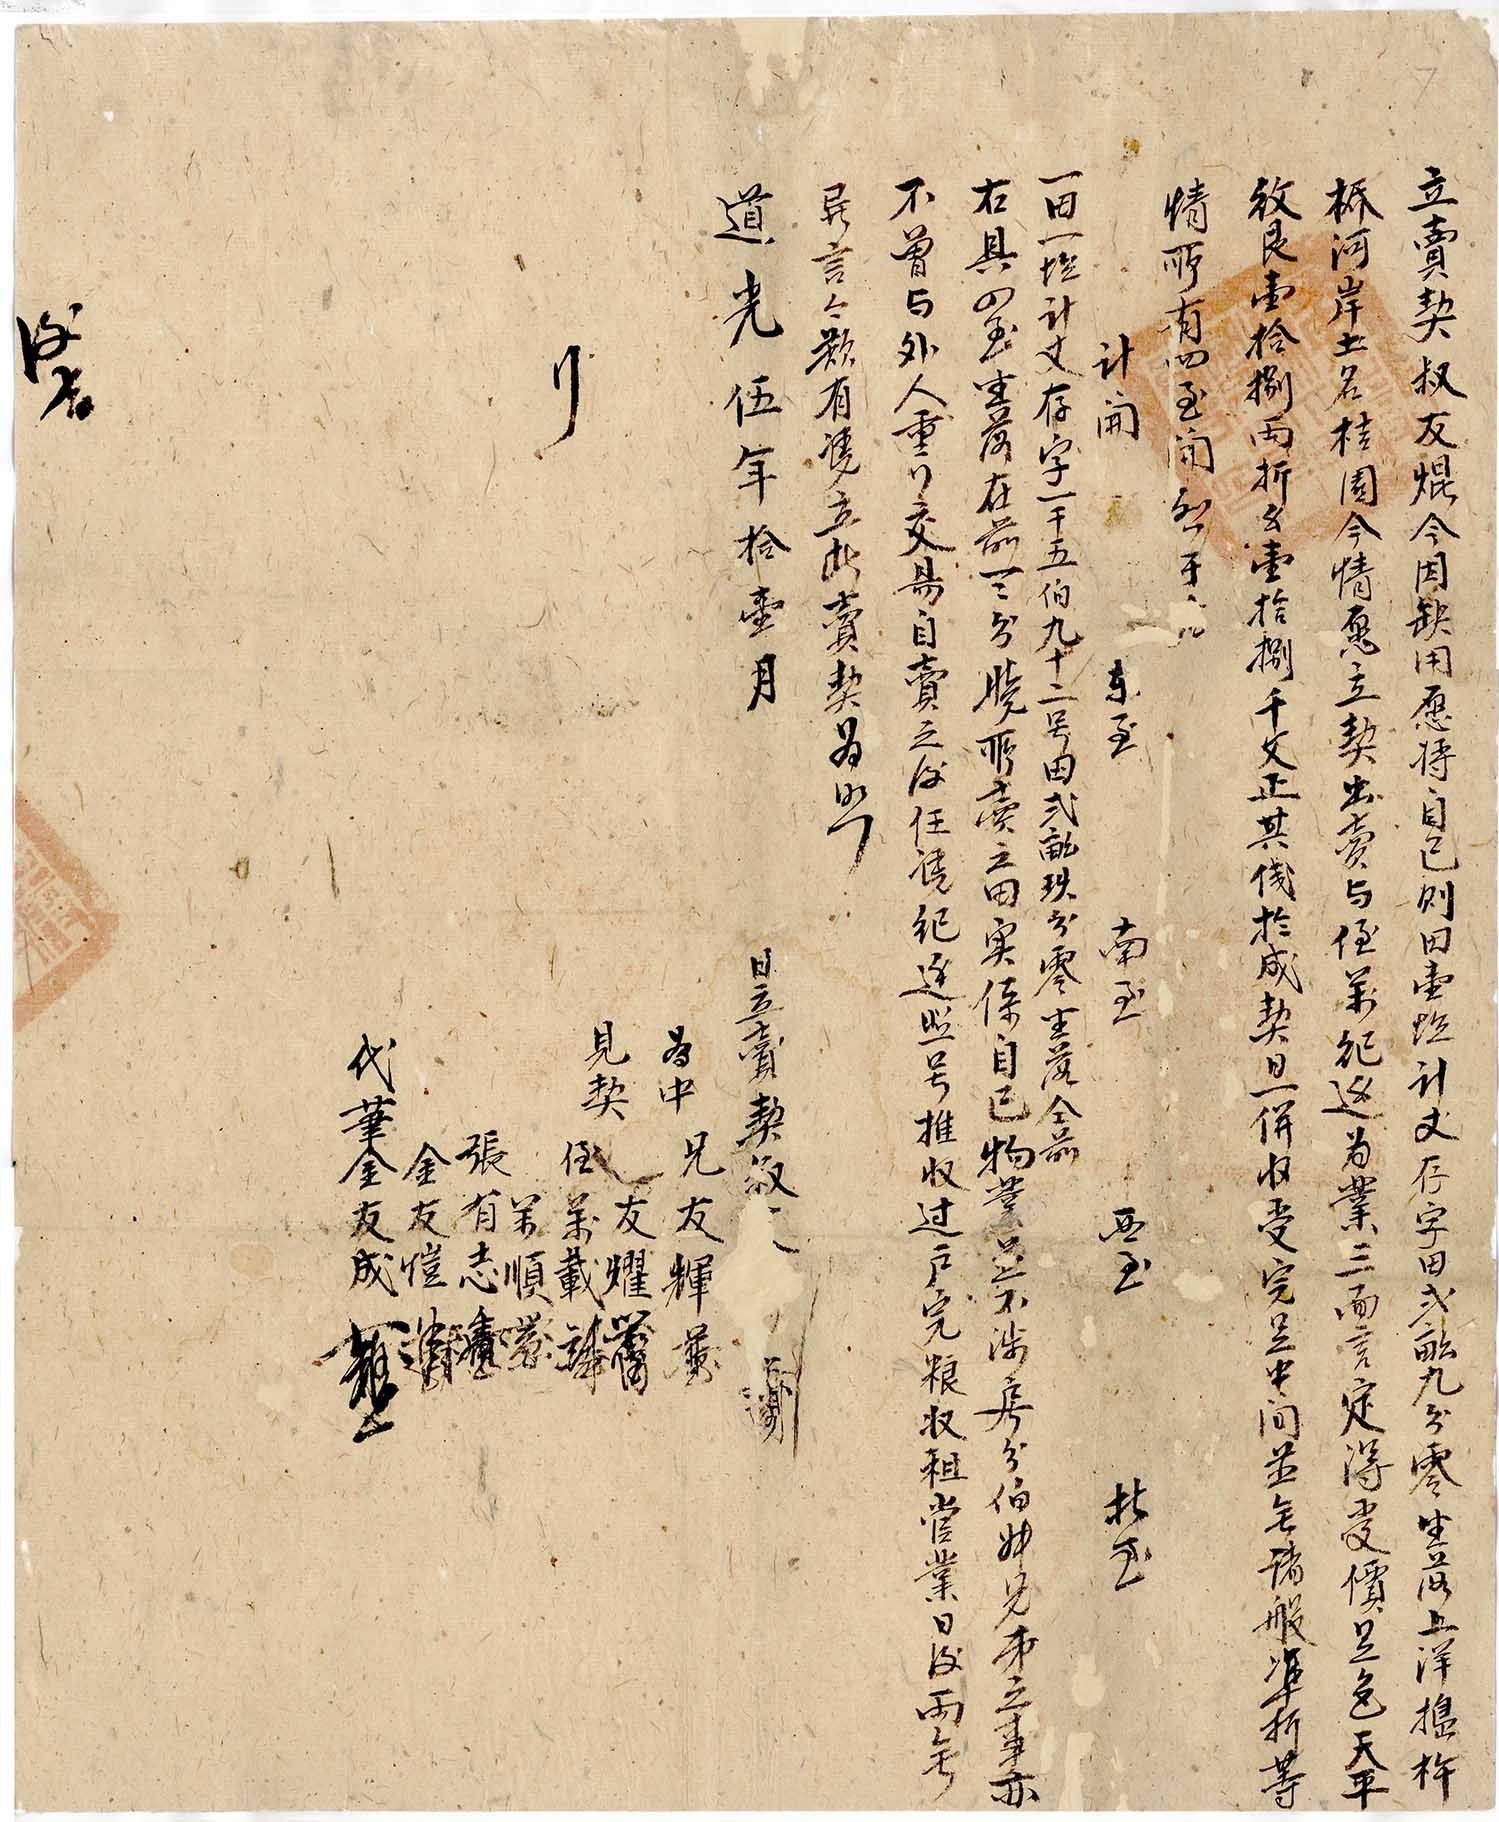 立賣契叔友焜今因缺用愿将自己则田壹坵計丈存字田弍畝九分零坐落上洋搗杵
桥河岸土名桂園今情愿立契出賣与侄萬纪边为業三面言定得受價足色天平
纹艮壹拾捌両折戋壹拾捌千文正其俴於成契日一併收受完足中间並無诸般準折等
情所有四至闹列于
計開 東至 南至 西至 北至
一田一坵計丈存字一千五伯九十二号田弍畝玖分零坐落仝前
右具四至坐落在前一一分曉所賣之田实係自己物業並不涉房分伯叔兄弟之事亦
不曾与外人重行交易自賣之後任凴纪边照号推收过户完粮收租営業日後両無
異言今欲有凴立此賣契為照
道光伍年拾壹月
日立賣契叔
為中 兄友輝
友耀
見契 侄萬載
萬順
張有志
金友愷
代筆金友成
行